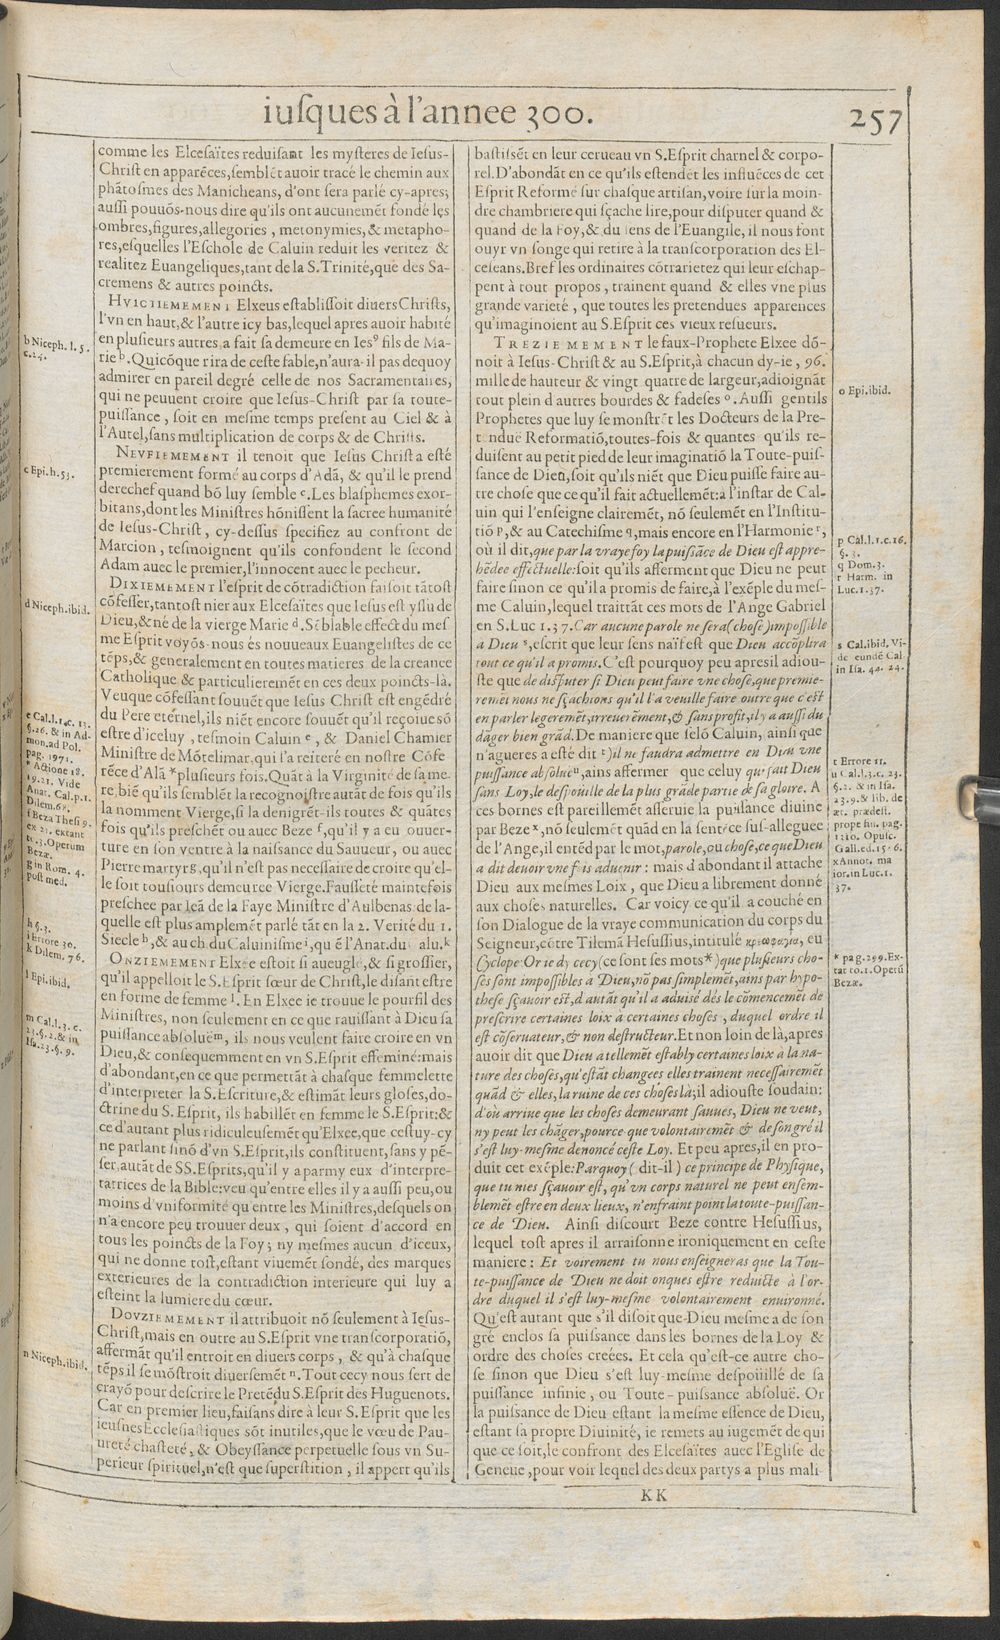 iusques à l'annee 300.
257
comme les Elcesaïtes reduisant les mysteres de Iesus-
Christ en apparẽces, semblẽt auoir tracé le chemin aux
phãtosmes des Manicheans, d'ont sera parlé cy-apres;
aussi pouuõs-nous dire qu'ils ont aucunemẽt fondé les
ombres, figures, allegories, metonymies, & metapho-
res, esquelles l'Eschole de Caluin reduit les veritez &
realitez Euangeliques, tant de la S. Trinité, que des Sa-
cremens & autres poincts.
HVICTIEMEMENT Elxeus establissoit diuers Christs,
l'vn en haut, & l'autre icy bas, lequel apres auoir habité
en plusieurs autres a fait sa demeure en Ies⁹ fils de Ma-
rie b. Quicõque rira de ceste fable, n'aura-il pas dequoy
admirer en pareil degré celle de nos Sacramentaires,
qui ne peuuent croire que Iesus-Christ par sa toute-
puissance, soit en mesme temps present au Ciel & à
l'Autel, sans multiplication de corps & de Christs.
NEVFIEMEMENT il tenoit que Iesus Christ a esté
premierement formé au corps d'Adã, & qu'il le prend
derechef quand bõ luy semble c. Les blasphemes exor-
bitans, dont les Ministres hõnissent la sacree humanité
de Iesus-Christ, cy-dessus specifiez au confront de
Marcion, tesmoignent qu'ils confondent le second
Adam auec le premier, l'innocent auec le pecheur.
DIXIEMEMENT l'esprit de cõtradiction faisoit tãtost
cõfesser, tantost nier aux Elcesaïtes que Iesus est yssu de
Dieu, & né de la vierge Marie d. Sẽblable effect du mes
me Esprit voyõs-nous és nouueaux Euangelistes de ce
tẽps, & generalement en toutes matieres de la creance
Catholique & particulieremẽt en ces deux poincts-là.
Veuque cõfessant souuẽt que Iesus Christ est engẽdré
du Pere eternel, ils niẽt encore souuẽt qu'il reçoiue sõ
estre d'iceluy, tesmoin Caluin e, & Daniel Chamier
Ministre de Mõtelimar. qui l'a reiteré en nostre Cõfe
rẽce d'Alã * plusieurs fois. Quãt à la Virginité de sa me-
re, biẽ qu'ils semblẽt la recognoistre autãt de fois qu'ils
la nomment Vierge, si la denigrẽt-ils toutes & quãtes
fois qu'ils preschẽt ou auec Beze f, qu'il y a eu ouuer-
ture en son ventre à la naissance du Sauueur, ou auec
Pierre martyr g, qu'il n'est pas necessaire de croire qu'el-
le soit tousiours demeuree Vierge. Fausseté maintefois
preschee par Ieã de la Faye Ministre d'Aulbenas: de la-
quelle est plus amplemẽt parlé tãt en la 2. Verité du 1.
Siecle h, & au ch. du Caluinisme i, qu ẽ l'Anat. du alu. k
ONZIEMEMENT Elxee estoit si aueuglé, & si grossier,
qu'il appelloit le S. Esprit sœur de Christ, le disant estre
en forme de femme l. En Elxee ie trouue le pourfil des
Ministres, non seulement en ce que rauissant à Dieu sa
puissance absoluë m, ils nous veulent faire croire en vn
Dieu, & consequemment en vn S. Esprit effeminé: mais
d'abondant, en ce que permettãt à chasque femmelette
d'interpreter la S. Escriture, & estimãt leurs gloses, do-
ctrine du S. Esprit, ils habillẽt en femme le S. Esprit: &
ce d'autant plus ridiculeusemẽt qu'Elxee, que cestuy-cy
ne parlant sinõ d'vn S. Esprit, ils constituent, sans y pẽ-
ser, autãt de SS. Esprits, qu'il y a parmy eux d'interpre-
tatrices de la Bible: veu qu'entre elles il y a aussi peu, ou
moins d'vniformité qu'entre les Ministres, desquels on
n'a encore peu trouuer deux, qui soient d'accord en
tous les poincts de la Foy; ny mesmes aucun d'iceux,
qui ne donne tost, estant viuemẽt sondé, des marques
exterieures de la contradiction interieure qui luy a
esteint la lumiere du cœur.
DOVZIEMEMENT il attribuoit nõ seulement à Iesus-
Christ, mais en outre au S. Esprit vne transcorporatiõ,
affermãt qu'il entroit en diuers corps, & qu'à chasque
tẽps il se mõstroit diuersemẽt n. Tout cecy nous sert de
crayõ pour descrire le Pretẽdu S. Esprit des Huguenots.
Car en premier lieu, faisans dire à leur S. Esprit que les
ieusnes Ecclesiastiques sõt inutiles, que le vœu de Pau-
ureté chasteté, & Obeyssance perpetuelle sous vn Su-
perieur spirituel, n'est que superstition, il appert qu'ils
b Niceph. l. 5.
c. 24.
c Epi. h. 53.
d Niceph. ibid.
e Cal. l. 1. c. 13.
§. 26. & in Ad-
mon. ad Pol.
pag. 1971.
* Actione 18.
19. 21. Vide
Anat. Cal. p. 1.
Dilem. 68.
f Beza Thesi 9.
ex 21. extant
to. 3. Operum
Bezæ.
g in Rom. 4.
post med.
h §. 3.
i Errore 30.
k Dilem. 76.
l Epi. ibid.
m Cal. l. 3. c.
23. §. 2. & in
Isa. 23. §. 9.
n Niceph. ibid.
bastissẽt en leur cerueau vn S. Esprit charnel & corpo-
rel. D'abondãt en ce qu'ils estendẽt les influẽces de cet
Esprit Reformé sur chasque artisan, voire sur la moin-
dre chambriere qui sçache lire, pour disputer quand &
quand de la Foy, & du sens de l'Euangile, il nous font
ouyr vn songe qui retire à la transcorporation des El-
ceseans. Bref les ordinaires cõtrarietez qui leur eschap-
pent à tout propos, trainent quand & elles vne plus
grande varieté, que toutes les pretendues apparences
qu'imaginoient au S. Esprit ces vieux resueurs.
TREZIEMEMENT le faux-Prophete Elxee dõ-
noit à Iesus-Christ & au S. Esprit, à chacun dy-ie, 96.
mille de hauteur & vingt quatre de largeur, adioignãt
tout plein d'autres bourdes & fadeses o. Aussi gentils
Prophetes que luy se monstrẽt les Docteurs de la Pre-
tenduë Reformatiõ, toutes-fois & quantes qu'ils re-
duisent au petit pied de leur imaginatiõ la Toute-puis-
sance de Dieu, soit qu'ils niẽt que Dieu puisse faire au-
tre chose que ce qu'il fait actuellemẽt: à l'instar de Cal-
uin qui l'enseigne clairemẽt, nõ seulemẽt en l'Institu-
tiõ p, & au Catechisme q, mais encore en l'Harmonie r,
où il dit, que par la vraye foy la puissãce de Dieu est appre-
hẽdee effectuelle: soit qu'ils afferment que Dieu ne peut
faire sinon ce qu'il a promis de faire, à l'exẽple du mes-
me Caluin, lequel traittãt ces mots de l'Ange Gabriel
en S. Luc 1. 37. Car aucune parole ne sera (chose) impossible
à Dieu s, escrit que leur sens naïf est que Dieu accõplira
tout ce qu'il a promis. C'est pourquoy peu apres il adiou-
ste que de disputer si Dieu peut faire vne chose, que premie-
remẽt nous ne sçachions qu'il l'a veuille faire outre que c'est
en parler legeremẽt, irreuerẽment, & sans profit, il y a aussi du
dãger bien grãd. De maniere que selõ Caluin, ainsi que
n'agueres a esté dit t) il ne faudra admettre en Dieu vne
puissance absoluë u, ains affermer que celuy qui fait Dieu
sans Loy, le despoüille de la plus grãde partie de sa gloire. A
ces bornes est pareillemẽt asseruie la puissance diuine
par Beze x, nõ seulemẽt quãd en la sentẽce sus-alleguee
de l'Ange, il entẽd par le mot, parole, ou chose, ce que Dieu
a dit deuoir vne fois aduenir: mais d'abondant il attache
Dieu aux mesmes Loix, que Dieu a librement donné
aux choses naturelles. Car voicy ce qu'il a couché en
son Dialogue de la vraye communication du corps du
Seigneur, cõtre Tilemã Hesussius, intitulé κρεωφαγία, eu
Cyclope: Or ie dy cecy (ce sont ses mots *) que plusieurs cho-
ses sont impossibles à Dieu, nõ pas simplemẽt, ains par hypo-
these sçauoir est, d'autãt qu'il a aduisé dés le cõmencemẽt de
prescrire certaines loix à certaines choses, duquel ordre il
est cõseruateur, & non destructeur. Et non loin de là, apres
auoir dit que Dieu a tellemẽt estably certaines loix à la na-
ture des choses, qu'estãt changees elles trainent necessairemẽt
quãd & elles, la ruine de ces choses là; il adiouste soudain:
d'où arriue que les choses demeurant sauues, Dieu ne veut,
ny peut les chãger, pource que volontairemẽt & de son gré il
s'est luy-mesme denoncé ceste Loy. Et peu apres, il en pro-
duit cet exẽple: Parquoy (dit-il) ce principe de Physique,
que tu mes sçauoir est, qu'vn corps naturel ne peut ensem-
blemẽt estre en deux lieux, n'enfraint point la toute-puissan-
ce de Dieu. Ainsi discourt Beze contre Hesussius,
lequel tost apres il arraisonne ironiquement en ceste
maniere: Et voirement tu nous enseigneras que la Tou-
te-puissance de Dieu ne doit onques estre reduicte à l'or-
dre duquel il s'est luy-mesme volontairement enuironné.
Qu'est autant que s'il disoit que Dieu mesme a de son
gré enclos sa puissance dans les bornes de la Loy &
ordre des choses creées. Et cela qu'est-ce autre cho-
se sinon que Dieu s'est luy-mesme despoüillé de sa
puissance infinie, ou Toute-puissance absoluë. Or
la puissance de Dieu estant la mesme essence de Dieu,
estant sa propre Diuinité, ie remets au iugemẽt de qui
que ce soit, le confront des Elcesaïtes auec l'Eglise de
Geneue, pour voir lequel des deux partys a plus mali-
o Epi. ibid.
p Cal. l. 1. c. 16.
§. 3.
q Dom. 3.
r Harm. in
Luc. 1. 37.
s Cal. ibid. Vi-
de eundẽ Cal
in Isa. 42. 24.
t Errore 11.
u Cal. l. 3. c. 23.
§. 2. & in Isa.
23. 9. & lib. de
æt. prædest.
prope fin. pag.
1210. Opusc.
Gall. ed. 15.6.
x Annot. ma
ior. in Luc. 1.
37.
* pag. 299. Ex-
tat to. 1. Operũ
Bezæ.
KK